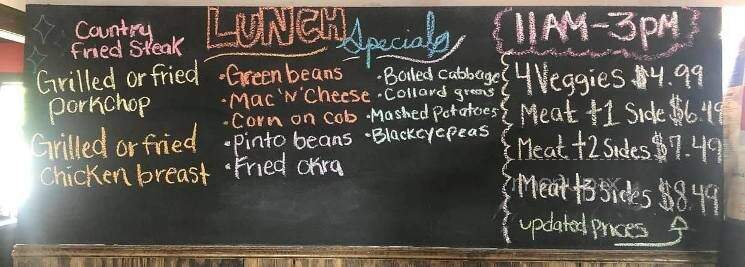 LUNCH Specials
Country
Fried Steak
Grilled or fried
porkchop
Grilled or fried
chicken breast
• Green beans
• Mac 'N' Cheese
• Corn on cob
• pinto beans
• Fried okra
• Boiled cabbage
• Collard greens
• Mashed Potatoes
• Blackeyepeas
11AM-3pM
4 Veggies $4.99
Meat +1 Side $6.49
Meat +2 Sides $7.49
Meat +3 Sides $8.49
updated prices